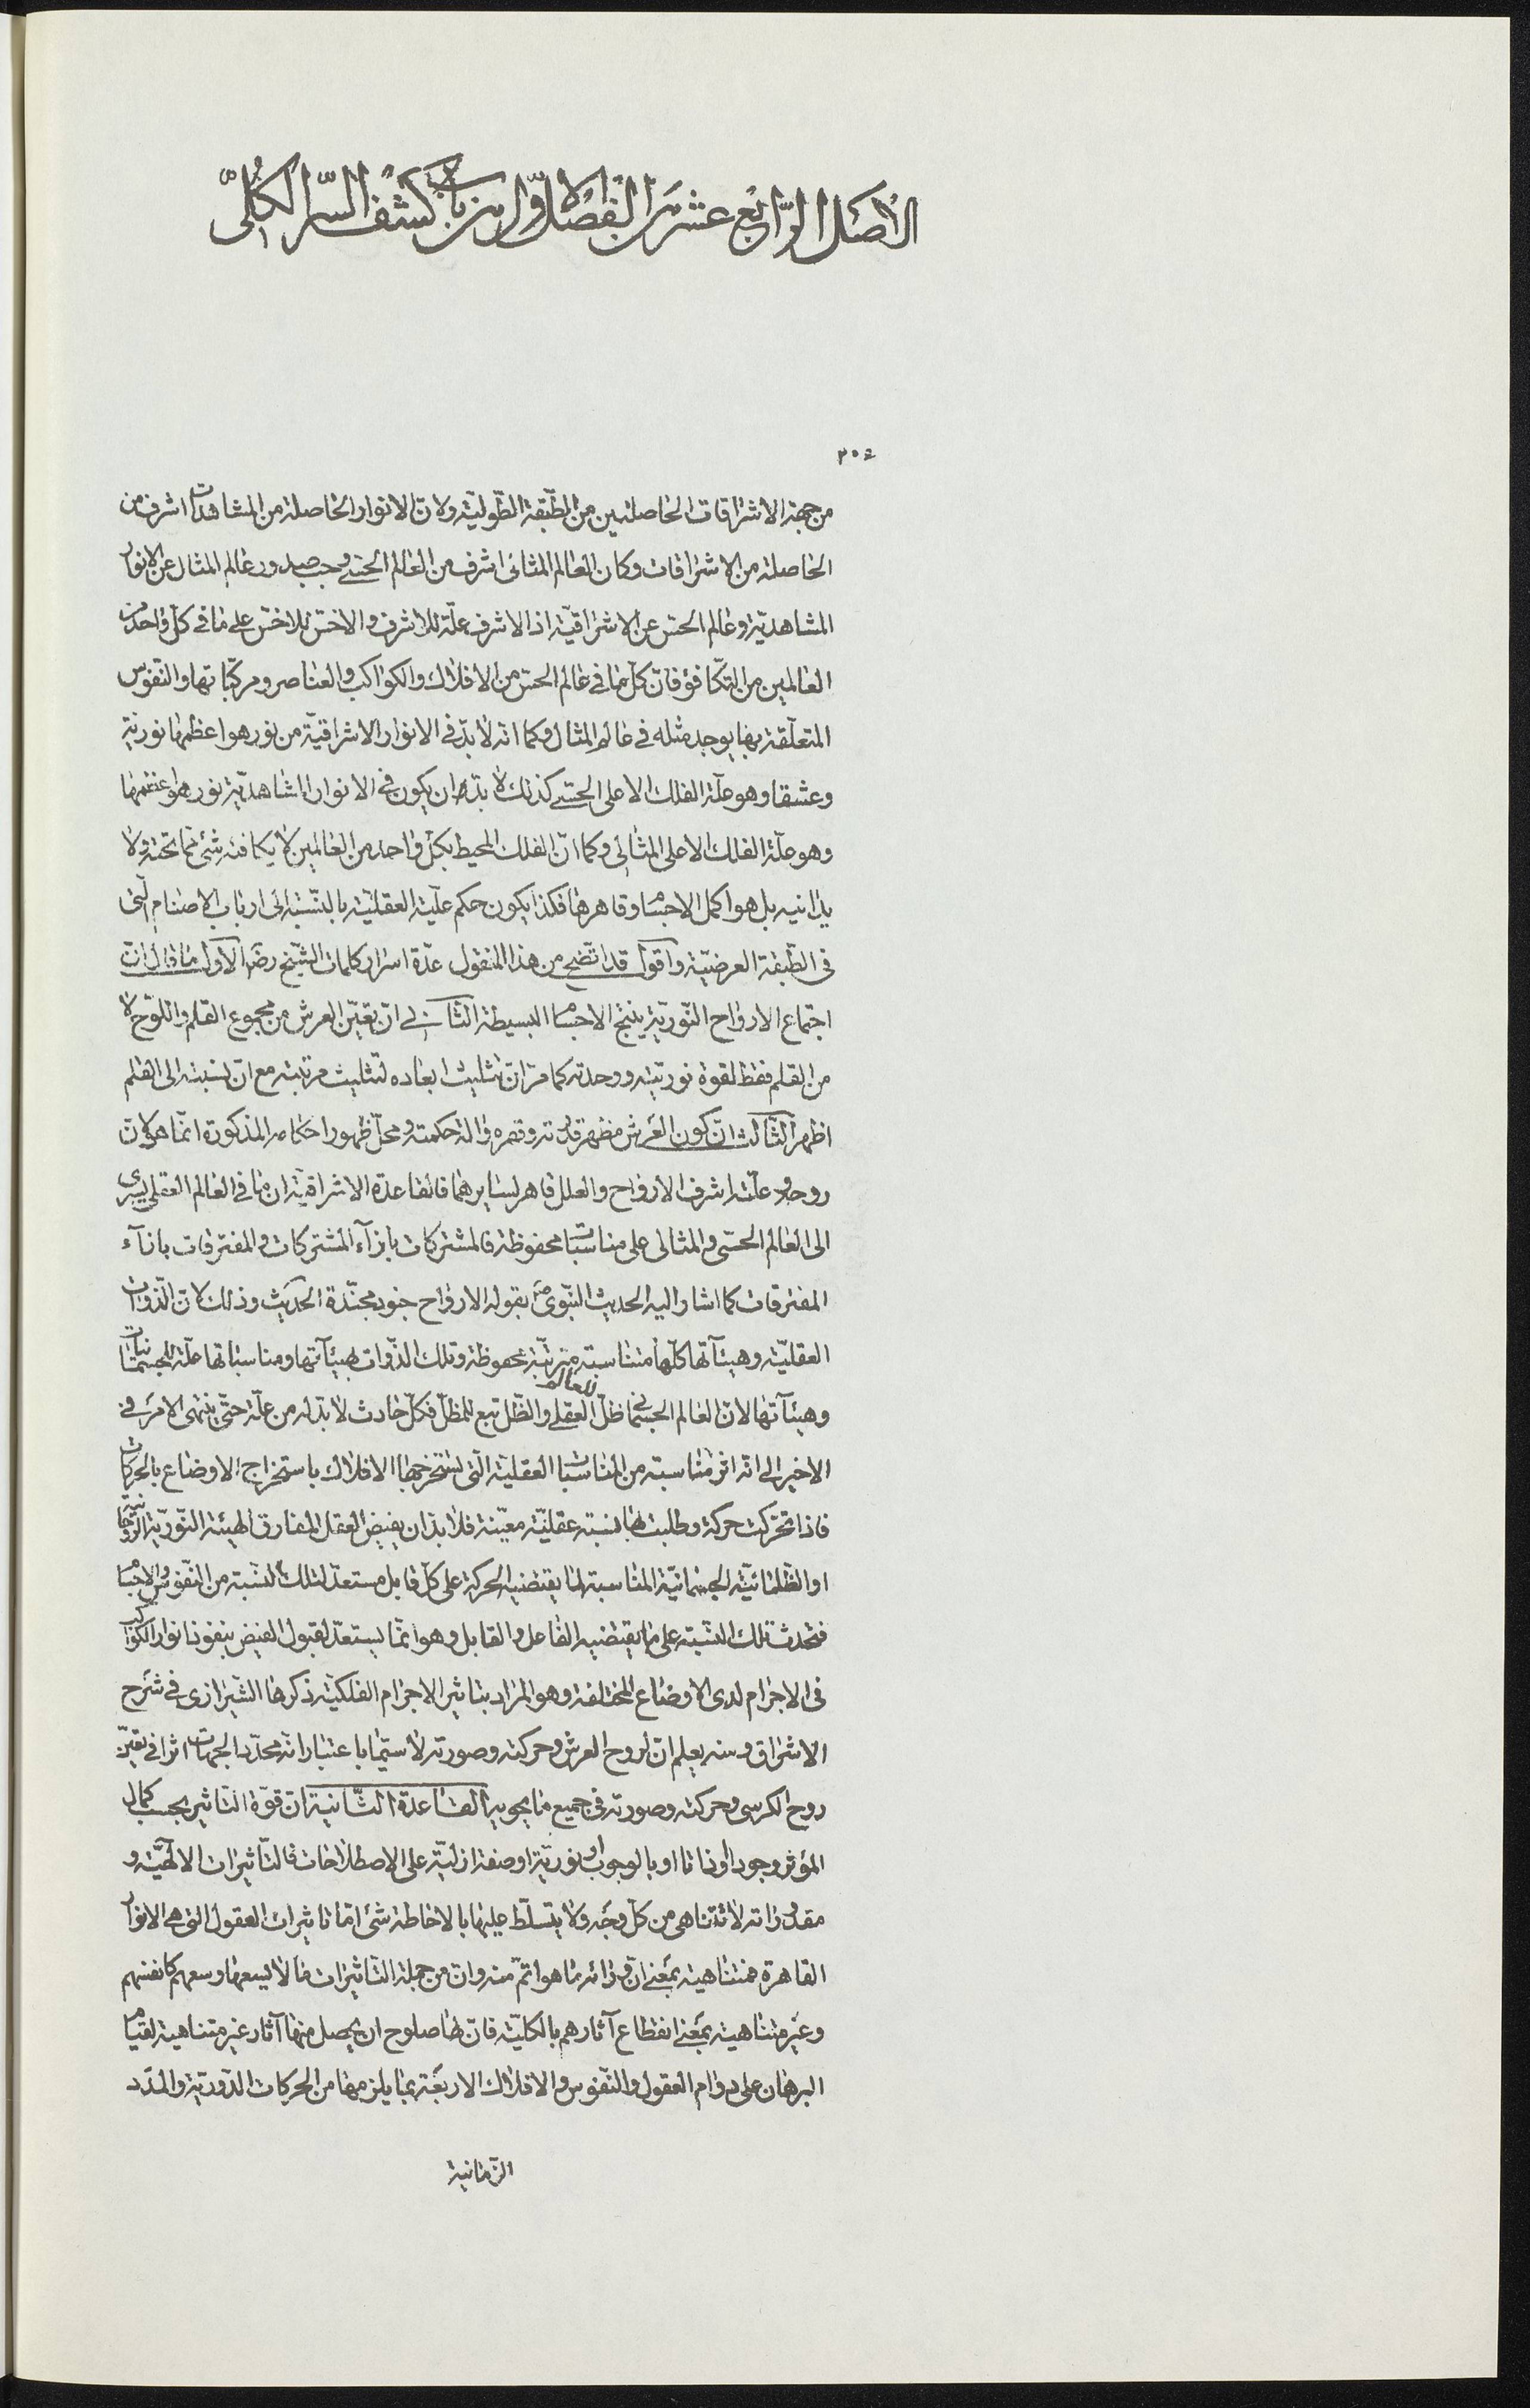 الاصل الرابع عشر من الفصل الاول من باب كشف السر الكلى
من جهة الاشراقات الحاصلتين من الطبقة الطولية ولان الانوار الحاصلة من المشاهدات اشرف من
الحاصلة من الاشراقات وكان العالم المثالى اشرف من العالم الحسى وجب صدور عالم المثال عن الانوار
المشاهدية وعالم الحس عن الاشراقية اذ الاشرف علة للاشرف والاخس للاخس على ما فى كل واحد من
العالمين من التكافؤ فان كل ما فى عالم الحس من الافلاك والكواكب والعناصر ومركباتها والنفوس
المتعلقة بها يوجد مثله فى عالم المثال وكما انه لا بد فى الانوار الاشراقية من نور هو اعظمها نورية
وعشقا وهو علة الفلك الاعلى الحسى كذلك لا بد وان يكون فى الانوار المشاهدية نور هو اعظمها
وهو علة الفلك الاعلى المثالى وكما ان الفلك المحيط بكل واحد من العالمين لا يكافئه شئ مما تحته ولا
يدانيه بل هو اكمل الاجسام وقاهرها فكذا يكون حكم علية العقلية بالنسبة الى ارباب الاصنام التى
فى الطبقة العرضية واقول قد اتضح من هذا المنقول عدة اسرار كلمات الشيخ رضه الاول ما قال ان
اجتماع الارواح النورية ينتج الاجسام البسيطة الثانى ان تعين العرش من مجموع القلم واللوح لا
من القلم فقط لقوة نوريته ووحدته كما مر ان تثليث ابعاده لتثليث مرتبته مع ان نسبته الى القلم
اظهر الثالث ان كون العرش مظهر قدرته وقهره وآلة حكمته ومحل ظهور احكامه المذكورة انما هو لان
روحه وعلته اشرف الارواح والعلل قاهر لسايرهما فالقاعدة الاشراقية ان ما فى العالم العقلى يسرى
الى العالم الحسى والمثالى على مناسبات محفوظة فالمشتركات بازآء المشتركات والمفترقات بازآء
المفترقات كما اشار اليه الحديث النبوى ص بقوله الارواح جنود مجندة الحديث وذلك لان الذوات
العقلية وهيئآتها كلها متناسبة مترتبة محفوظة وتلك الذوات بهيئآتها ومناسباتها علة للجسمانيات
وهيئآتها لان العالم الجسمانى ظل للعالم العقلى والظل تبع للمظل فكل حادث لا بد له من علة حتى ينتهى الامر فى
الاخير الى انه اثر مناسبة من المناسبات العقلية التى تستخرجها الافلاك باستخراج الاوضاع بالحركات
فاذا تحركت حركة وطلبت بها نسبة عقلية معينة فلا بد ان يفيض العقل المفارق الهيئة النورية الروحانية
او الظلمانية الجسمانية المناسبة لما يقتضيه الحركة على كل قابل مستعد لتلك النسبة من النفوس والاجسام
فتحدث تلك النسبة على ما يقتضيه الفاعل والقابل وهو انما يستعد لقبول الفيض بنفوذ انوار الكواكب
فى الاجرام لدى الاوضاع المختلفة وهو المراد بتاثير الاجرام الفلكية ذكرها الشيرازى فى شرح
الاشراق ومنه يعلم ان لروح العرش وحركته وصورته لا سيما باعتبار انه محدد الجهات اثرا فى تعين
روح الكرسى وحركته وصورته فى جميع ما يحويه القاعدة الثانية ان قوة التاثير بحسب كمال
المؤثر وجودا وذاتا او بالوجوب او نورية او صفة ازلية على الاصطلاحات فالتاثيرات الالهية و
مقدوراته لا تتناهى من كل وجه ولا يتسلط عليها بالاحاطة شئ اما تاثيرات العقول التى هى الانوار
القاهرة فمتناهية بمعنى ان ورائه ما هو اتم منه وان من جملة التاثيرات ما لا يسعها وسعهم كانفسهم
وغير متناهية بمعنى انقطاع آثارهم بالكلية فان لها صلوح ان يحصل منها آثار غير متناهية لقيام
البرهان على دوام العقول والنفوس والافلاك الاربعة بما يلزمها من الحركات الدورية والمدد
الزمانية